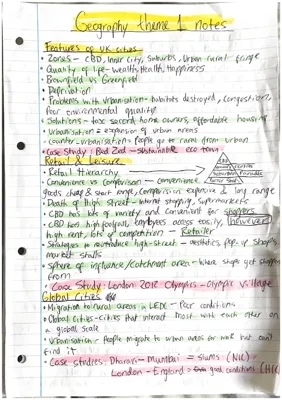 Geography theme 1 notes
Features of UK cities
• Zones - CBD, Inner City, Suburbs, Urban rural fringe
• Quality of life - Wealth, Health, Happiness
• Brownfield vs Greenfield
• Deprivation
• Problems with urbanisation - habitats destroyed, congestion,
Poor environmental quality
• Solutions - tase second home owners, affordable housing
• Urbanisation = expansion of urban areas
• counter-urbanisation - People go to rural from urban
• Case Study: Bed Zed - Sustainable eco town
Retail & Leisure
• Retail Hierarchy
• Convenience vs comparison - convenience
goods cheap & short range, comparison expensive & long range
• Death of High street - internet shopping, supermarkets
• CBD has lots of variety and convenient for shoppers
• CBD has high footfall, employees access easily, However
high rent, lots of competition - Retailer
• Strategies to reintroduce high-street - aesthetics, pop up shops,
market stalls
• sphere of influence/catchment area - Where shops get shoppers
from
• Case Study: London 2012 Olympics - Olympic village
Global Cities
• Migration to rural areas in LEDC - Poor conditions
• Global cities - cities that interact most with each other on
a global scale
• Urbanisation - People migrate to urban areas for work but can't
find it
• Case studies: Dharavi - Mumbai = slums (NIC)
London - England = good conditions (HIC)